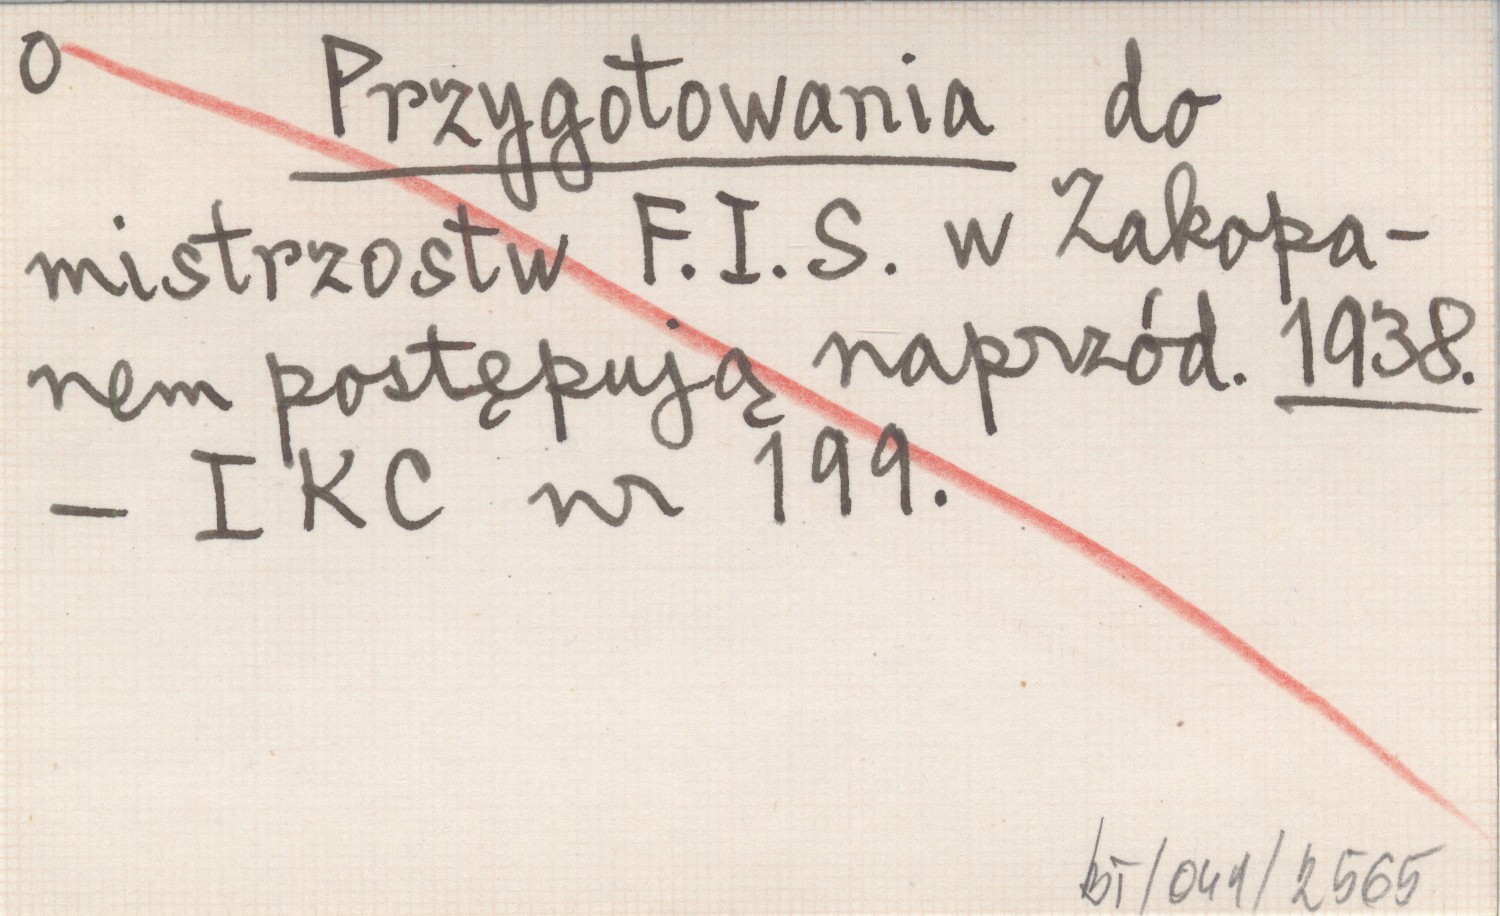 O Przygotowania do
mistrzostw F.I.S. w Zakopa-
nem postępują naprzód. 1938.
— IKC nr 199.
bt/041/2565